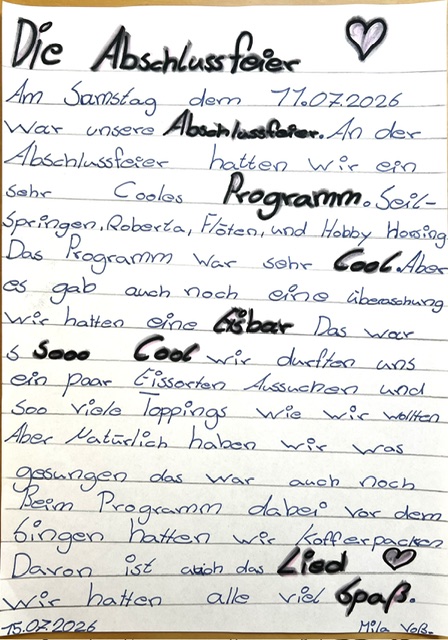 Die Abschlussfeier
Am Samstag dem 11.07.2026
war unsere Abschlussfeier. An der
Abschlussfeier hatten wir ein
sehr Cooles Programm. Seil-
springen, Roberta, Flöten, und Hobby Horsing
Das Programm war sehr Cool. Aber
es gab auch noch eine überraschung
wir hatten eine Eisbar Das war
s sooo Cool wir durften uns
ein paar Eissorten Aussuchen und
soo viele Toppings wie wir wollten
Aber Natürlich haben wir was
gesungen das war auch noch
Beim Programm dabei vor dem
singen hatten wir Kofferpacken
Davon ist auch das Lied
wir hatten alle viel Spaß.
15.07.2026 Mila Voß